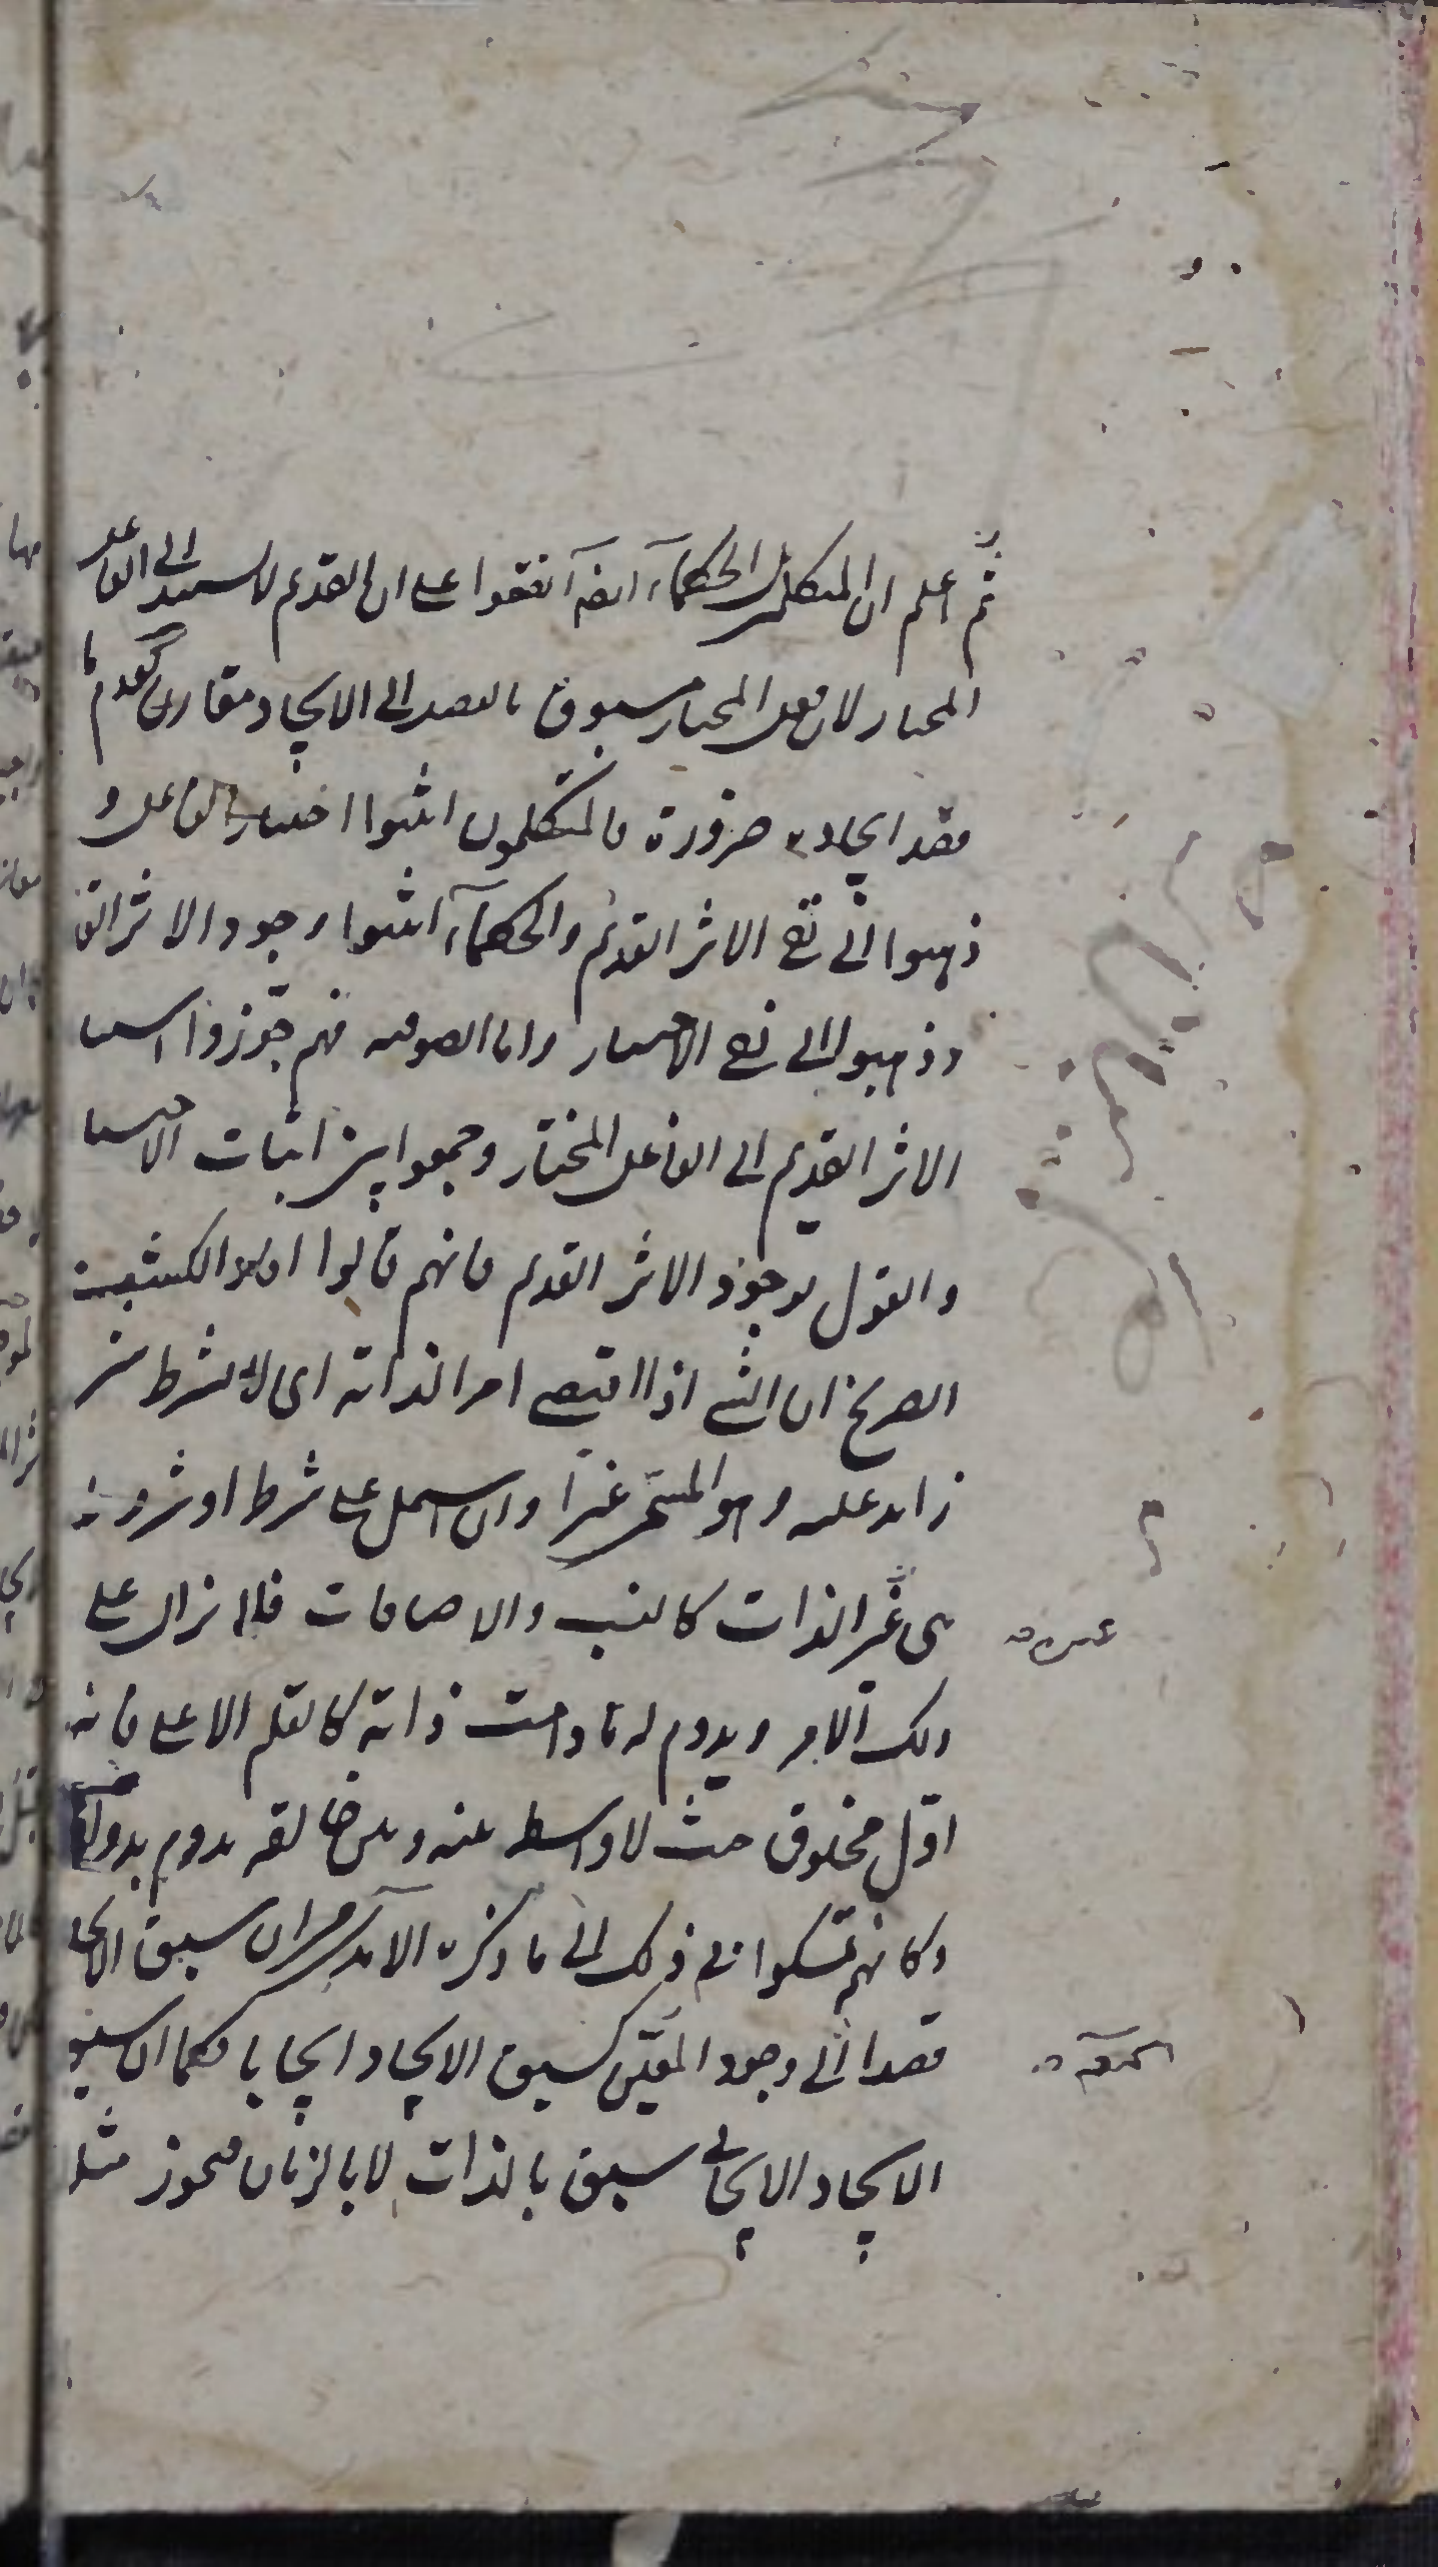 ثم اعلم ان المتكلمين الحكماء ايضا اتفقوا على ان القديم لا يستند الى الفاعل
المختار لان فعل المختار مسبوق بالقصد الى الايجاد مقارن لعدم ما
قصد ايجاده ضرورة فالمتكلمون اثبتوا اختيار الفاعل و
ذهبوا الى نفى الاثر القديم والحكماء اثبتوا وجود الاثر الق
وذهبوا الى نفى الاختيار واما الصوفيه فهم جوزوا استنا
الاثر القديم الى الفاعل المختار وجمعوا بين اثبات الاختيا
والقول بوجود الاثر القديم فانهم قالوا الكشف
الصريح ان الشئ اذا اقتضى امرا لذاته اى لا بشرط
زايد عليه وهو المسمى غيرا وان اشتمل على شرط او شروط
هى عين الذات كالنسب والاضافات فلا يزال على
ذلك الامر ويدوم له ما دامت ذاته كالقلم الاعلى فانه
اول مخلوق حيث لا واسطه بينه وبين خالقه يدوم بدوامه
وكانهم تمسكوا فى ذلك الى ما ذكره الآمدى من ان سبق الايجا
قصدا الى وجود المعين كسبق الايجاد ايجابا فكما ان سبق
الايجاد الايجابى سبق بالذات لا بالزمان فيجوز مثله